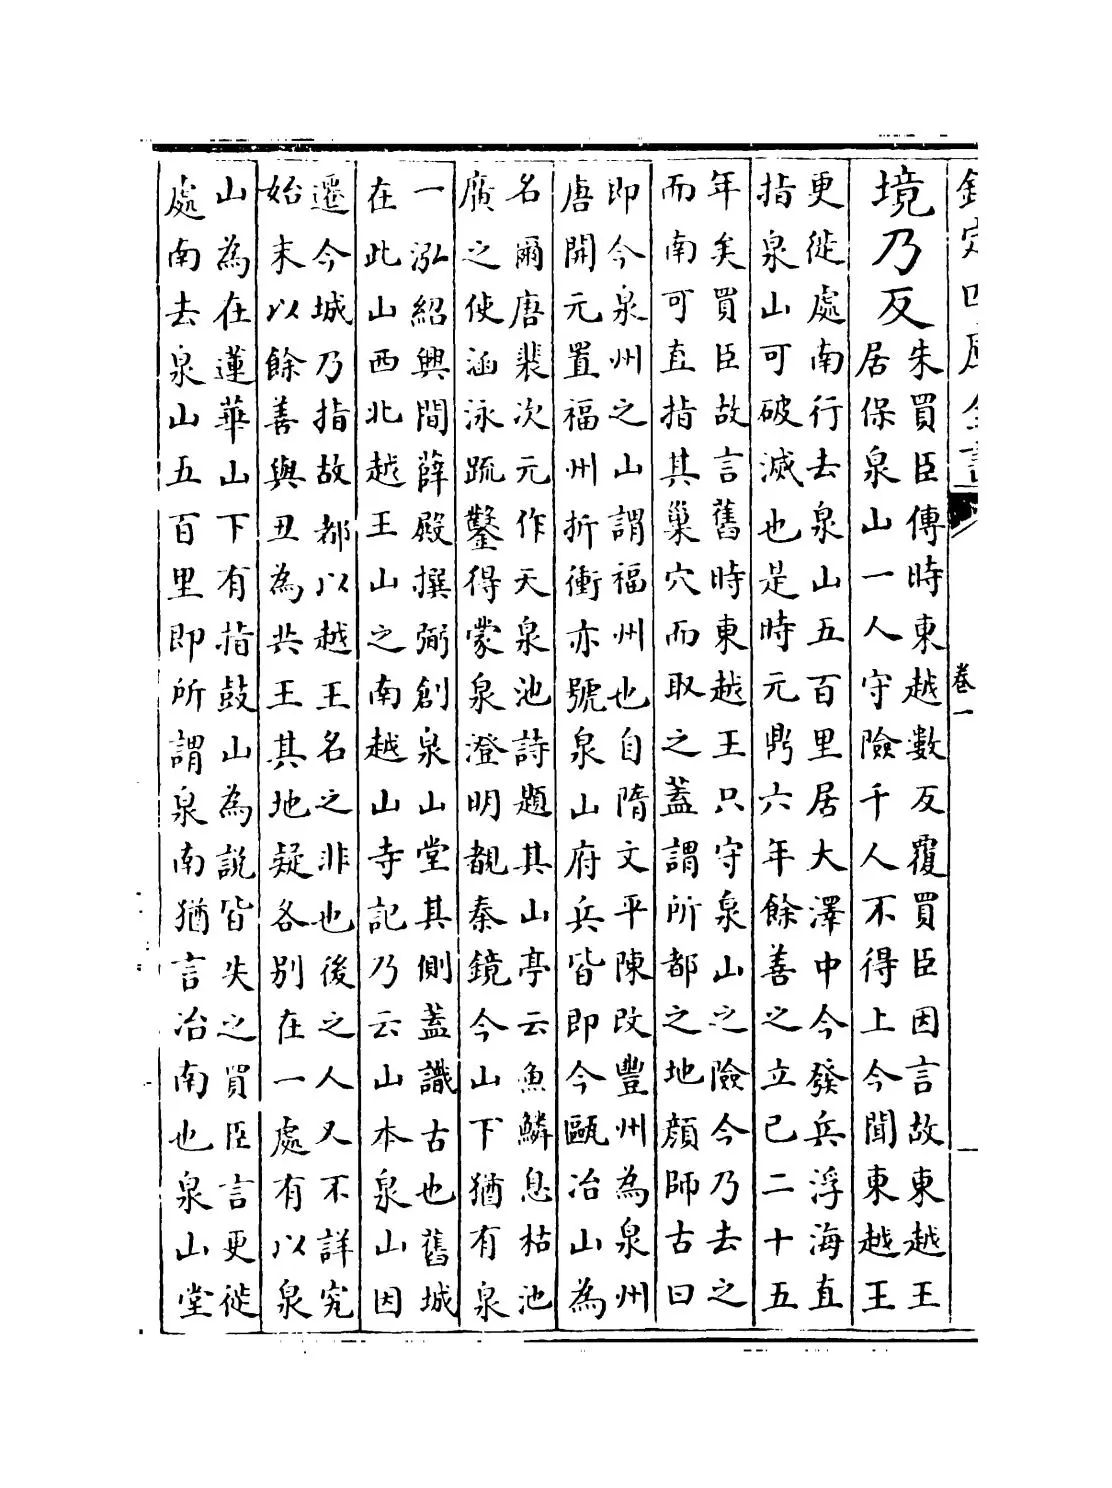 欽定四庫全書
卷一
境乃反
朱買臣傳時東越數反覆買臣因言故東越王
居保泉山一人守險千人不得上今聞東越王
更徙處南行去泉山五百里居大澤中今發兵浮海直
指泉山可破滅也是時元鼎六年餘善之立已二十五
年矣買臣故言舊時東越王只守泉山之險今乃去之
而南可直指其巢穴而取之蓋謂所都之地顔師古曰
即今泉州之山謂福州也自隋文平陳改豐州為泉州
唐開元置福州折衝亦號泉山府兵皆即今甌冶山為
名爾唐裴次元作天泉池詩題其山亭云魚鱗息枯池
廣之使涵泳疏鑿得蒙泉澄明覩秦鏡今山下猶有泉
一泓紹興間薛殿撰弼創泉山堂其側蓋識古也舊城
在此山西北越王山之南越山寺記乃云山本泉山因
遷今城乃指故都以越王名之非也後之人又不詳究
始末以餘善與丑為共王其地疑各別在一處有以泉
山為在蓮華山下有指鼓山為說皆失之買臣言更徙
處南去泉山五百里即所謂泉南猶言冶南也泉山堂